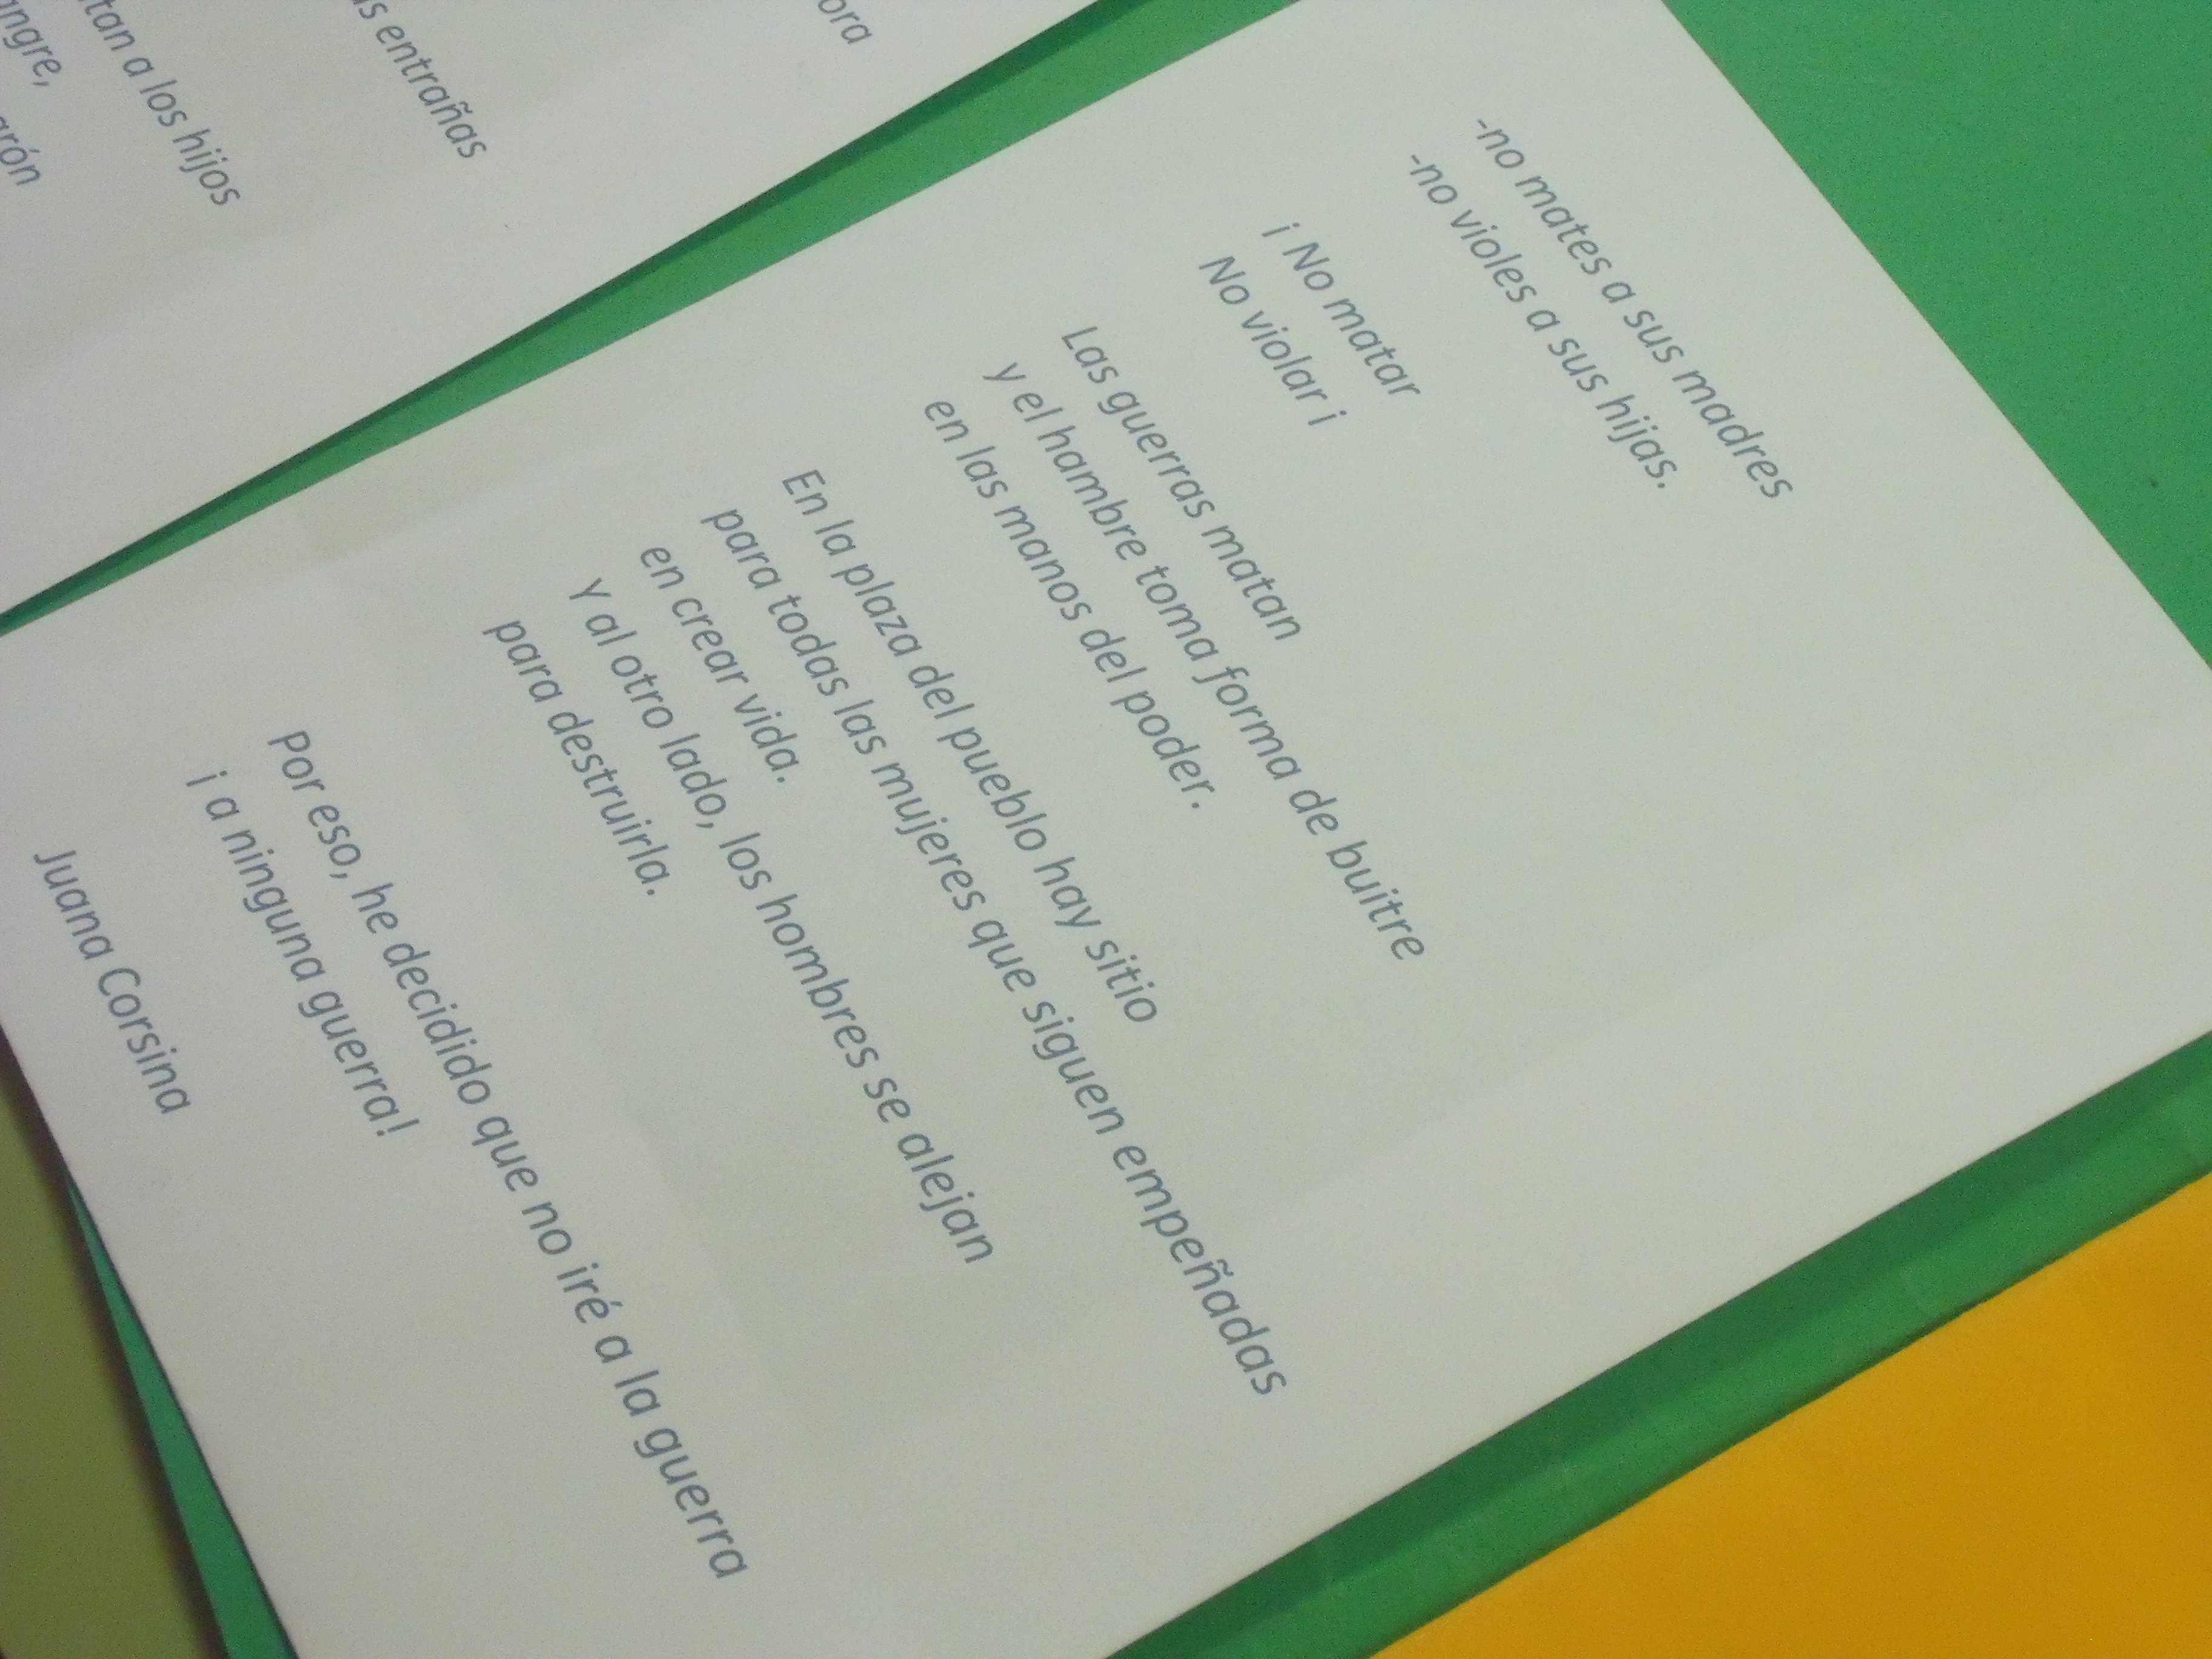 ngre,
tan a los hijos
s entrañas
ora
-no mates a sus madres
-no violes a sus hijas.
¡ No matar
No violar ¡
Las guerras matan
y el hambre toma forma de buitre
en las manos del poder.
En la plaza del pueblo hay sitio
para todas las mujeres que siguen empeñadas
en crear vida.
Y al otro lado, los hombres se alejan
para destruirla.
Por eso, he decidido que no iré a la guerra
¡ a ninguna guerra!
Juana Corsina